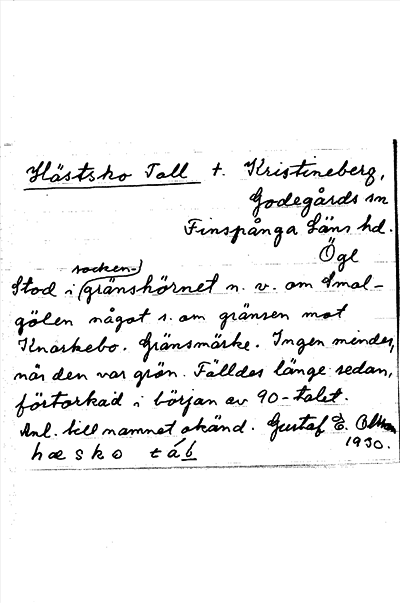 Hästsko Tall t. Kristineberg,
Godegårds sn
Finspånga Läns hd.
Ögl
Stod i (socken-)gränshörnet n. v. om Smal-
gölen något s. om gränsen mot
Knarkebo. Gränsmärke. Ingen mindes,
når den var grön. Fälldes länge sedan,
förtorkad i början av 90-talet.
Anl. till namnet okänd. Gustaf E.
1930.
hæsko